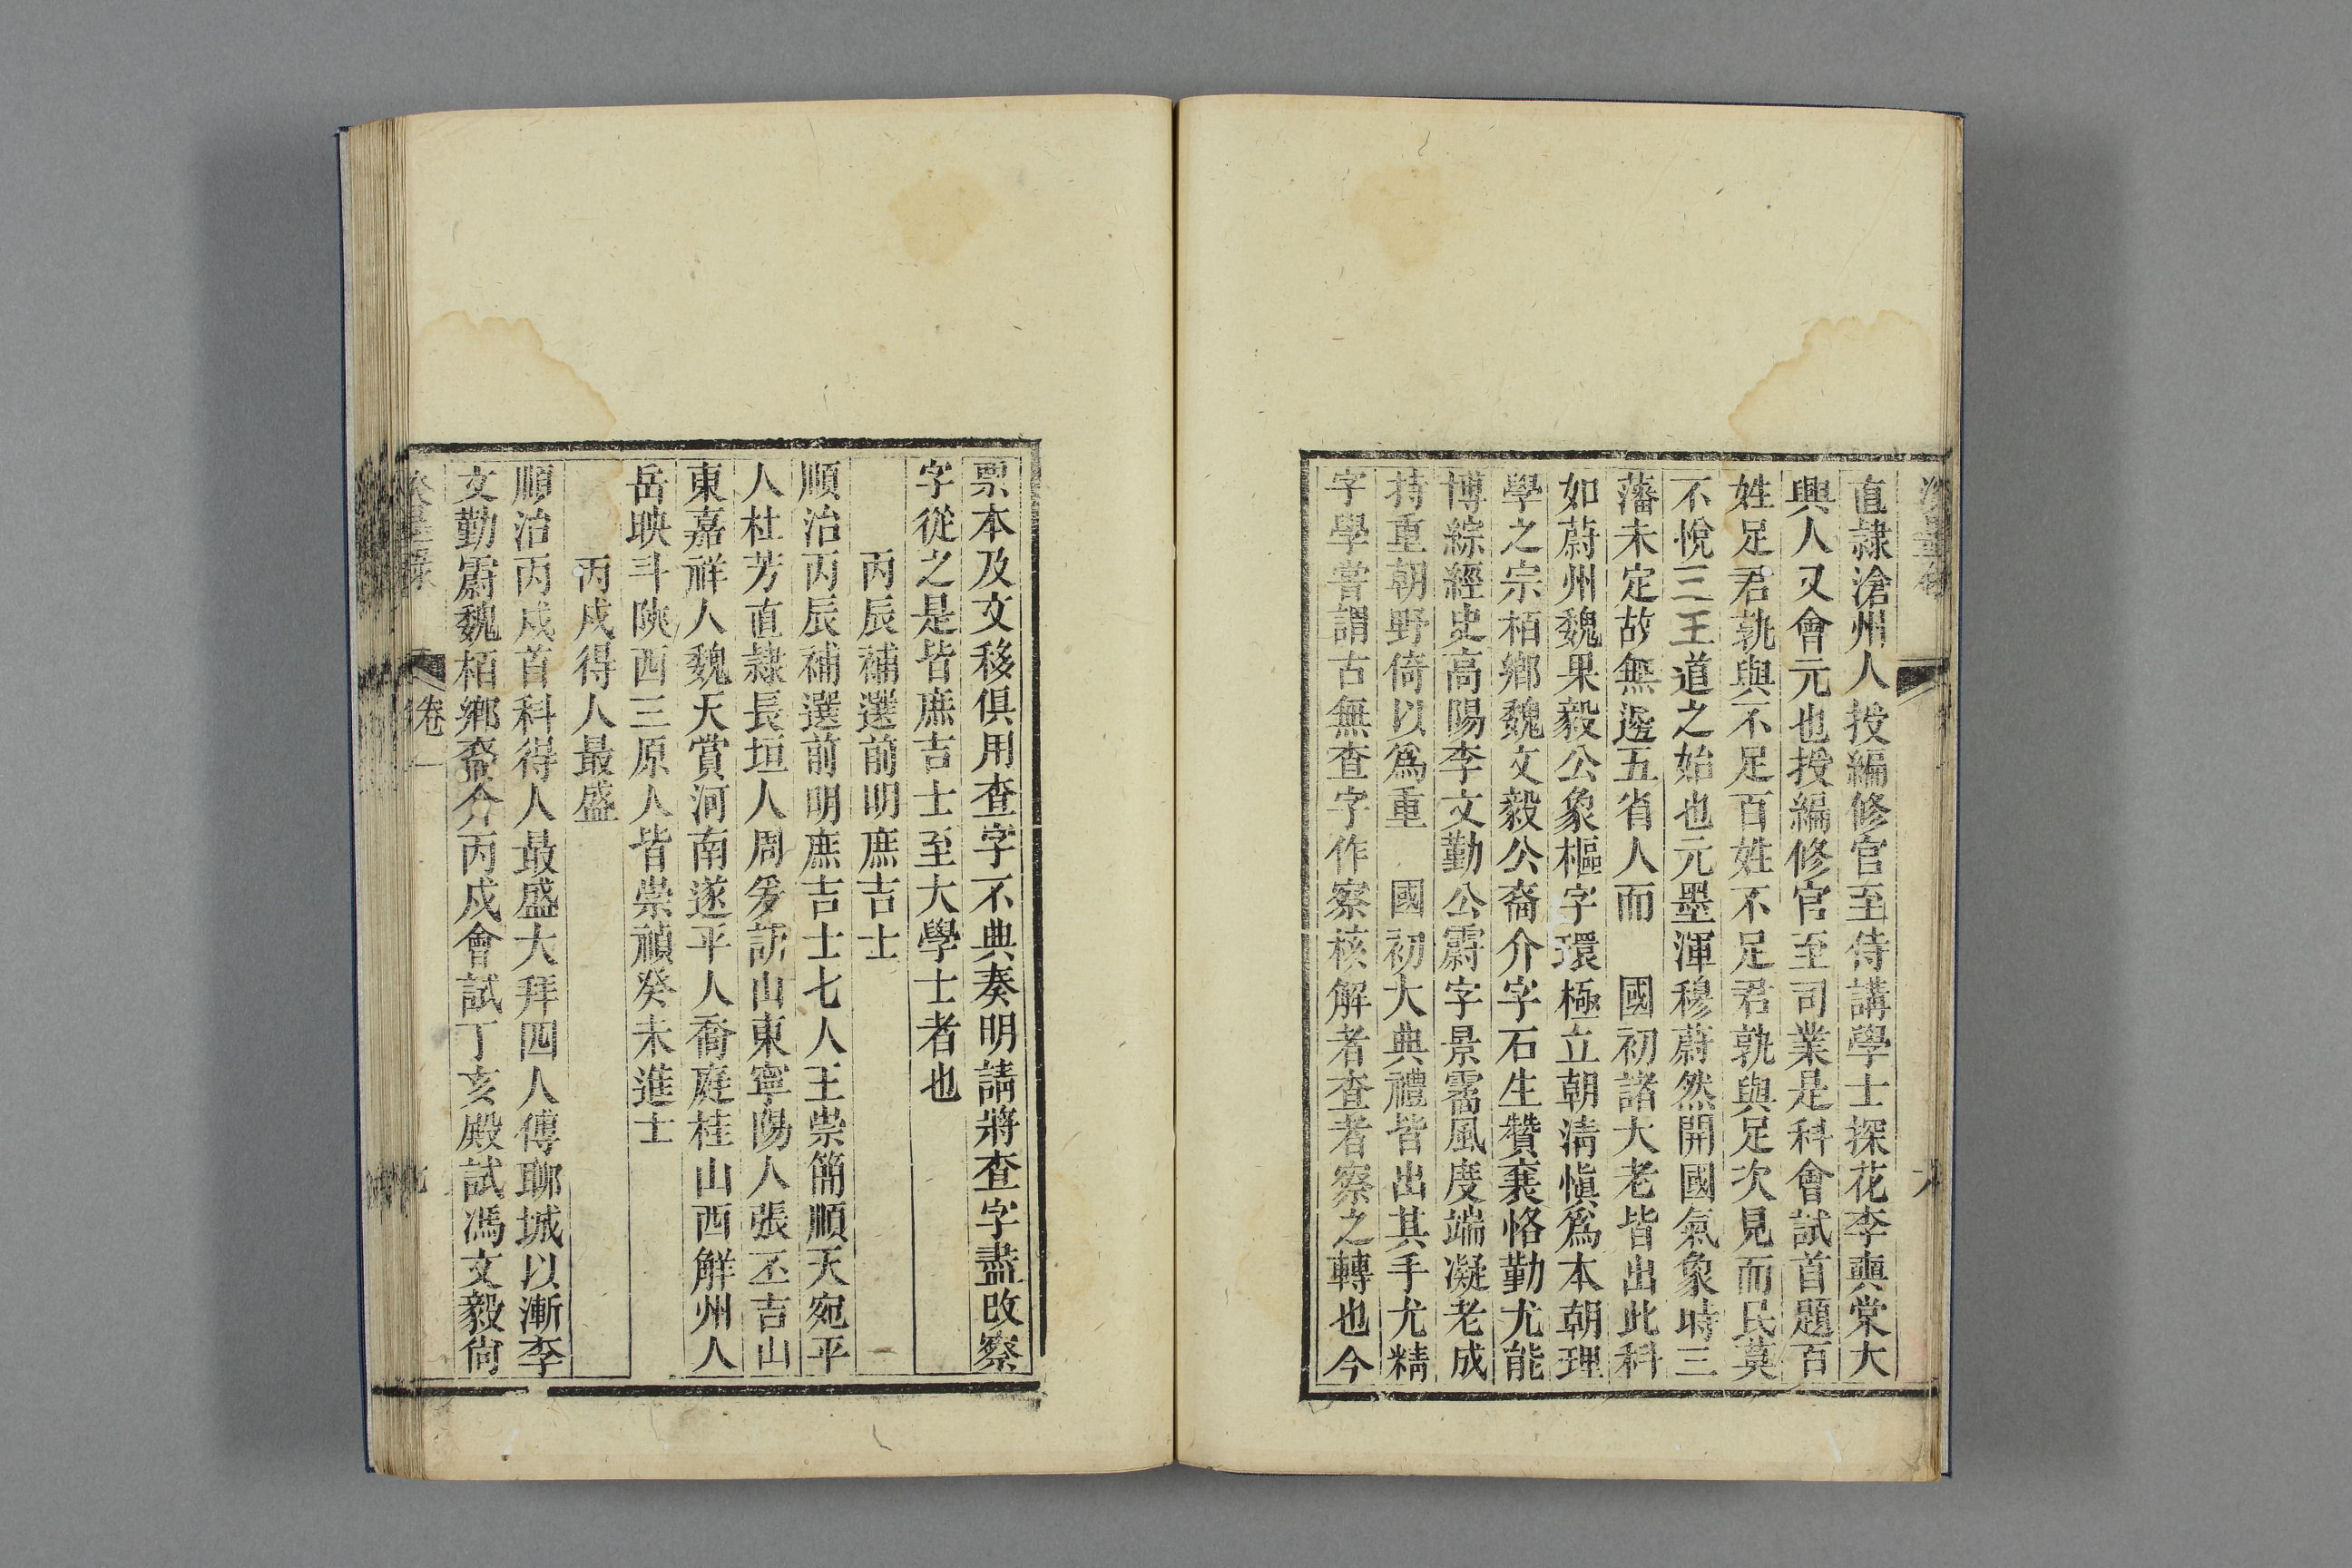 直隷滄州人授編修官至侍講學士探花李奭棠大
興人又會元也授編修官至司業是科會試首題百
姓足君孰與不足百姓不足君孰與足次見而民莫
不悅三王道之始也元墨渾穆蔚然開國氣象時三
藩未定故無邊五省人而　國初諸大老皆出此科
如蔚州魏果毅公象樞字環極立朝清愼爲本朝理
學之宗栢鄉魏文毅公裔介字石生贊襄恪勤尤能
博綜經史高陽李文勤公霨字景霱風度端凝老成
持重朝野倚以爲重　國初大典禮皆出其手尤精
字學嘗謂古無查字作察核解者查者察之轉也今
票本及文移俱用查字不典奏明請將查字盡改察
字從之是皆庶吉士至大學士者也
丙辰補選前明庶吉士
順治丙辰補選前明庶吉士七人王崇簡順天宛平
人杜芳直隷長垣人周爰訪山東寧陽人張丕吉山
東嘉祥人魏天賞河南遂平人喬庭桂山西解州人
岳映斗陝西三原人皆崇禎癸未進士
丙戍得人最盛
順治丙戍首科得人最盛大拜四人傅聊城以漸李
文勤霨魏栢鄉裔介丙戍會試丁亥殿試馮文毅尙
卷一